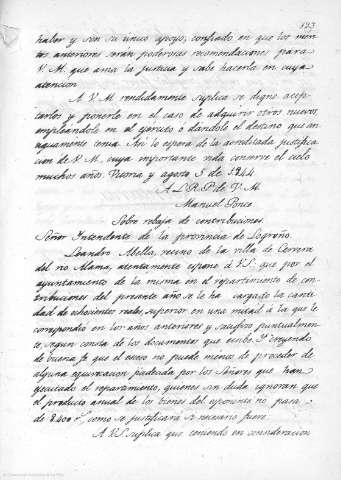 123
haber y son su unico apoyo, confiado en que los meri
tos anteriores serán poderosas recomendaciones para
V. M. que ama la justicia y sabe hacerla en cuya
atencion
A V. M. rendidamente suplica se digne acep-
tarlos y ponerle en el caso de adquirir otros nuevos,
empleandole en el egercito o dandole el destino que an
tiguamente tenia. Asi lo espera de la acreditada justifica
cion de V. M. cuya importante vida conserve el cielo
muchos años. Vitoria y agosto 5 de 1844
A L. R. P. de V. M.
Manuel Ponce
Sobre rebaja de contribuciones.
Señor Intendente de la provincia de Logroño.
Leandro Abella, vecino de la villa de Cervera
del rio Alama, atentamente espone á V.S.: que por el
ayuntamiento de la misma en el repartimiento de con-
tribuciones del presente año se le ha cargado la canti-
dad de ochocientos reales, superior en una mitad á la que le
correspondio en los años anteriores y satisfizo puntualmen-
te, segun consta de los documentos que exibe. Y creyendo
de buena fe que el exceso no puede menos de proceder de
alguna equivocacion padecida por los Señores que han
egecutado el repartimiento, quienes sin duda ignoran que
el producto anual de los bienes del esponente no pasa
de 8400 r.^s como se justificará si necesario fuere.
A V.S. suplica que teniendo en consideracion